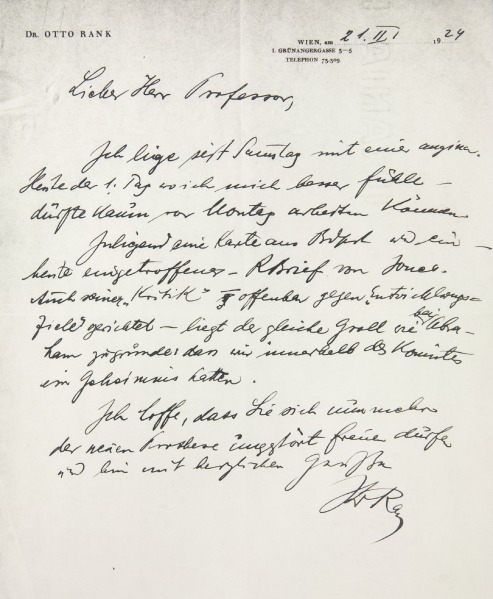 DR. OTTO RANK
WIEN, am 21. III 1924
I. GRÜNANGERGASSE 3–5
TELEPHON 75-5-09
Lieber Herr Professor,
Ich liege seit Samstag mit einer angina.
Heute der 1. Tag wo ich mich besser fühle –
dürfte kaum vor Montag arbeiten können
Inliegend eine Karte aus Bdpst und ein –
heute eingetroffener – RBrief von Jones.
Auch seiner „Kritik" offenbar gegen „Entwicklungs=
ziele" gerichtet – liegt der gleiche Groll wie bei Abra=
ham zugrunde: dass wir innerhalb des Komitees
ein Geheimnis hatten.
Ich hoffe, dass Sie sich nunmehr
der neuen Prothese ungestört freuen dürfen
und bin mit herzlichen Grüßen
Ihr Rank